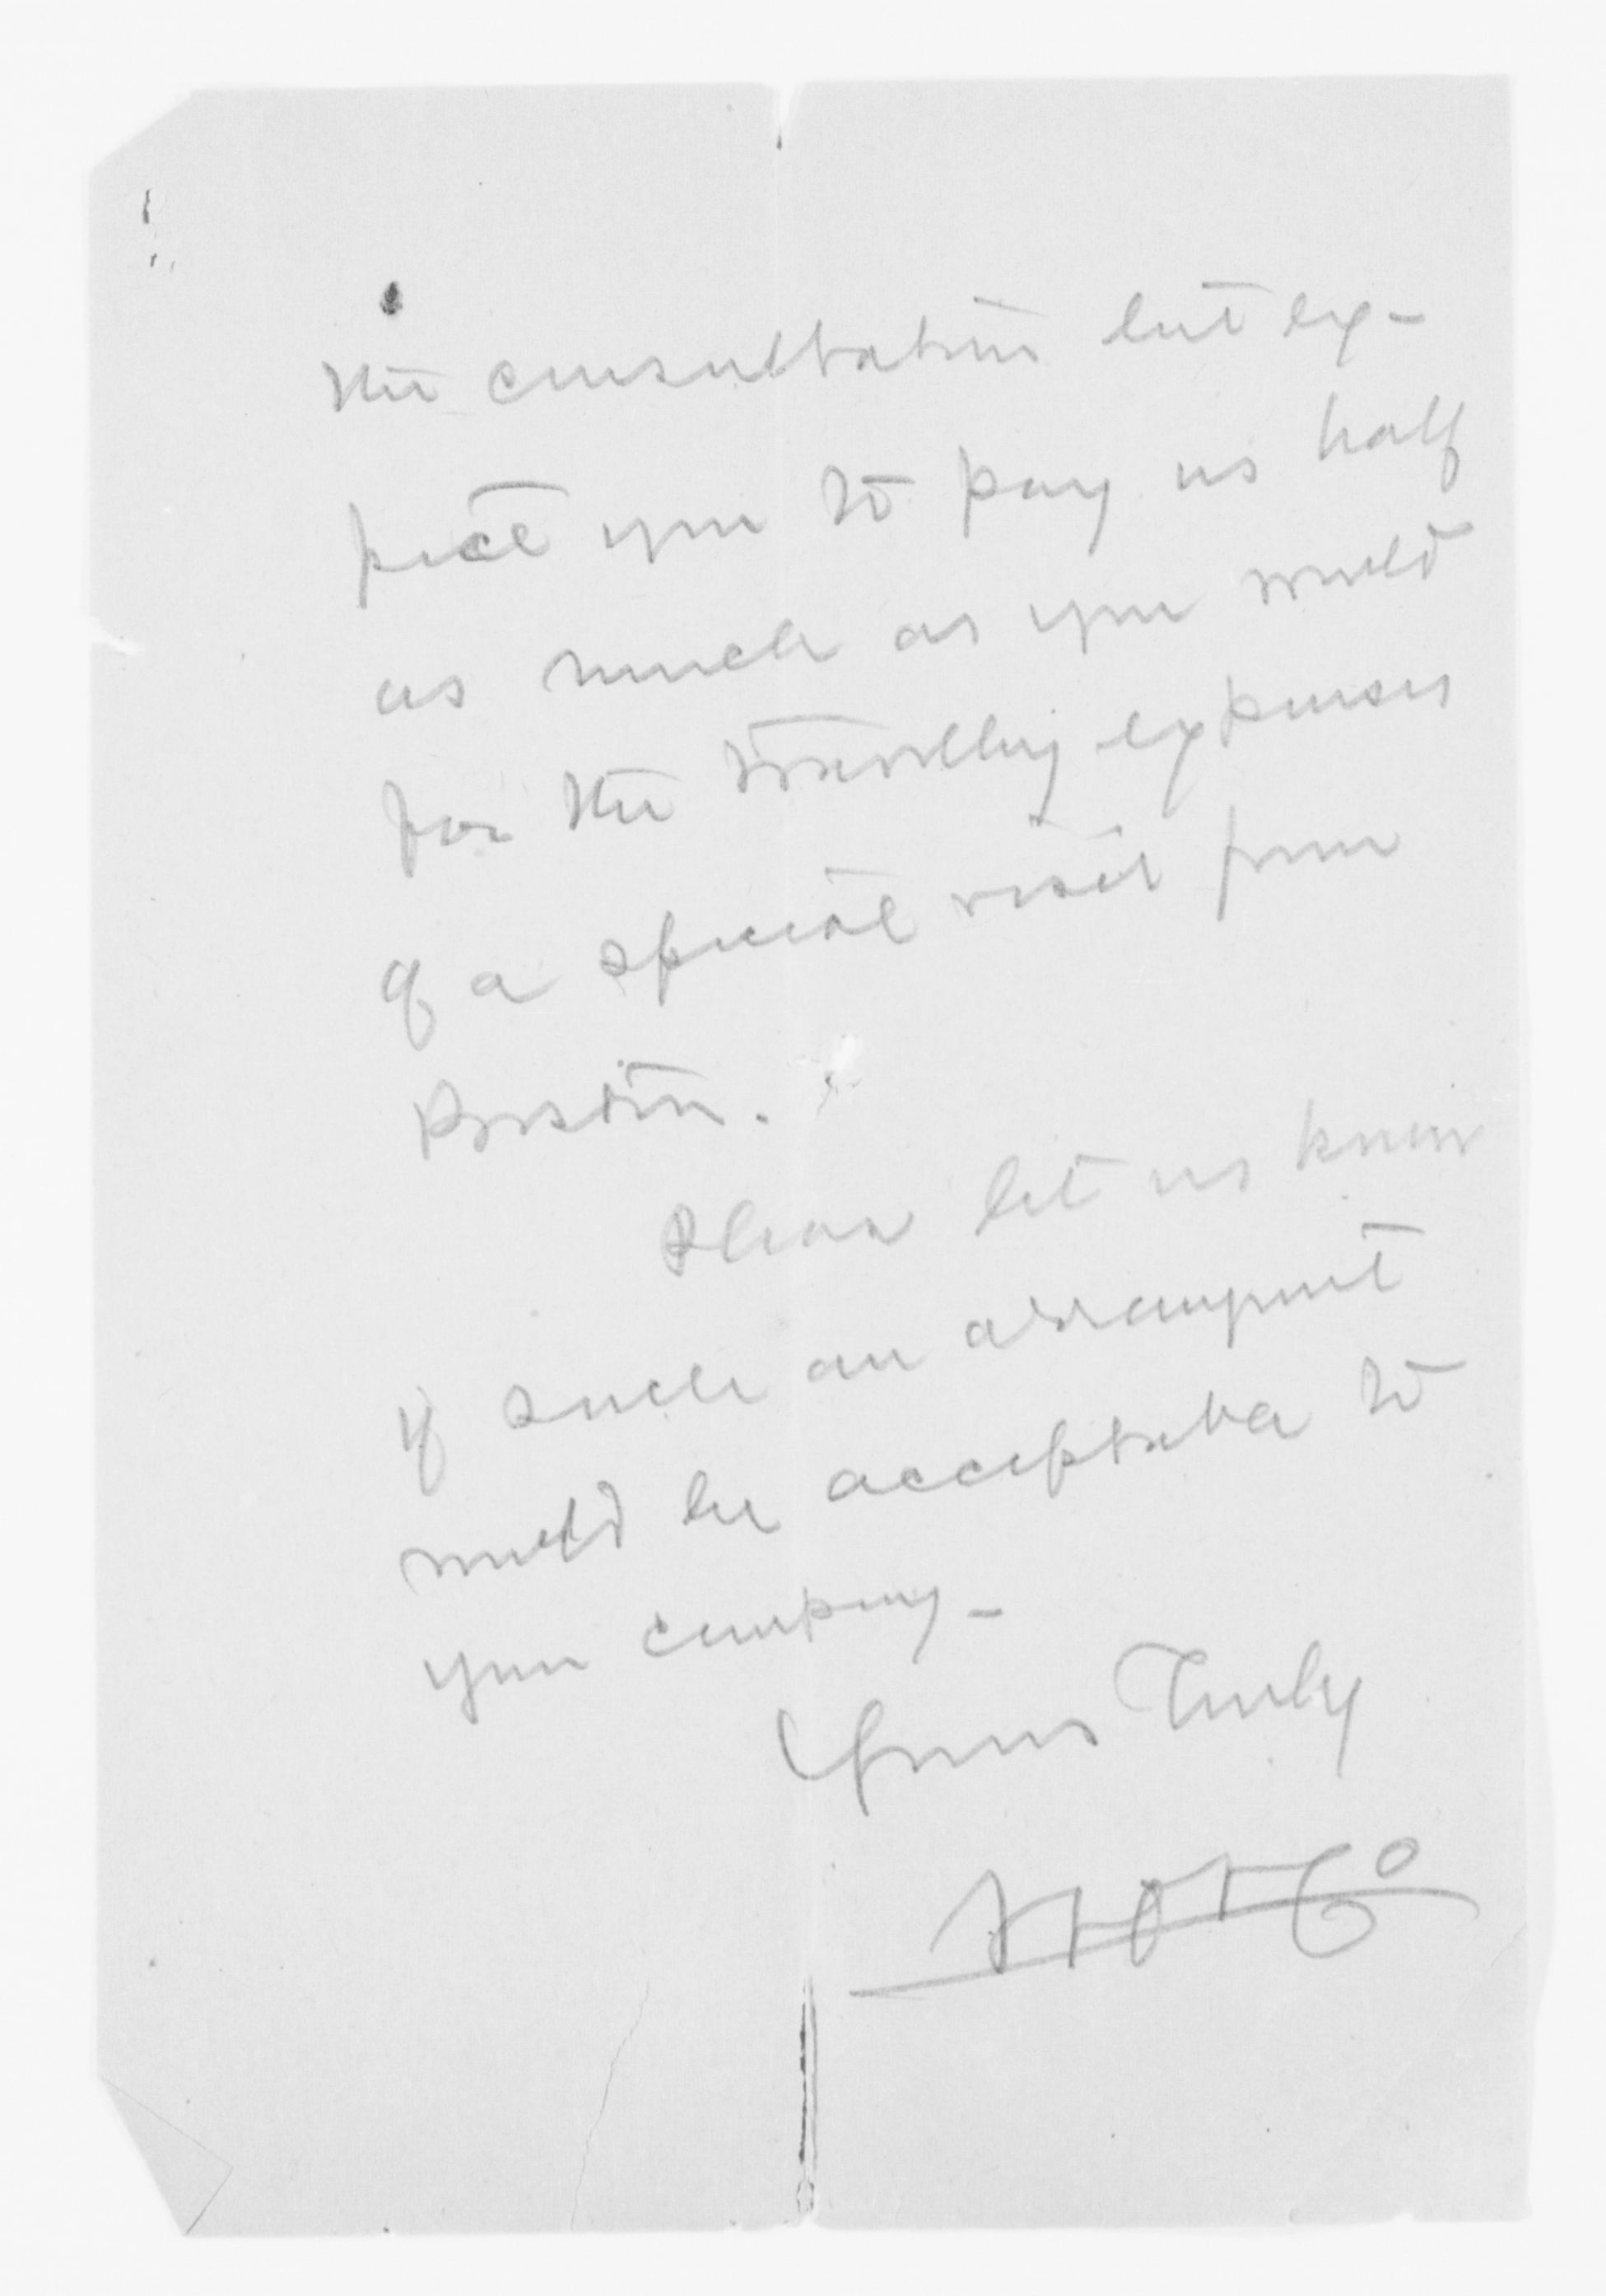 the consultation but ex-
pect you to pay us half
as much as you would
for the travelling expenses
of a special visit from
Boston.
Please let us know
if such an arrangement
would be acceptable to
your company -
Yours Truly